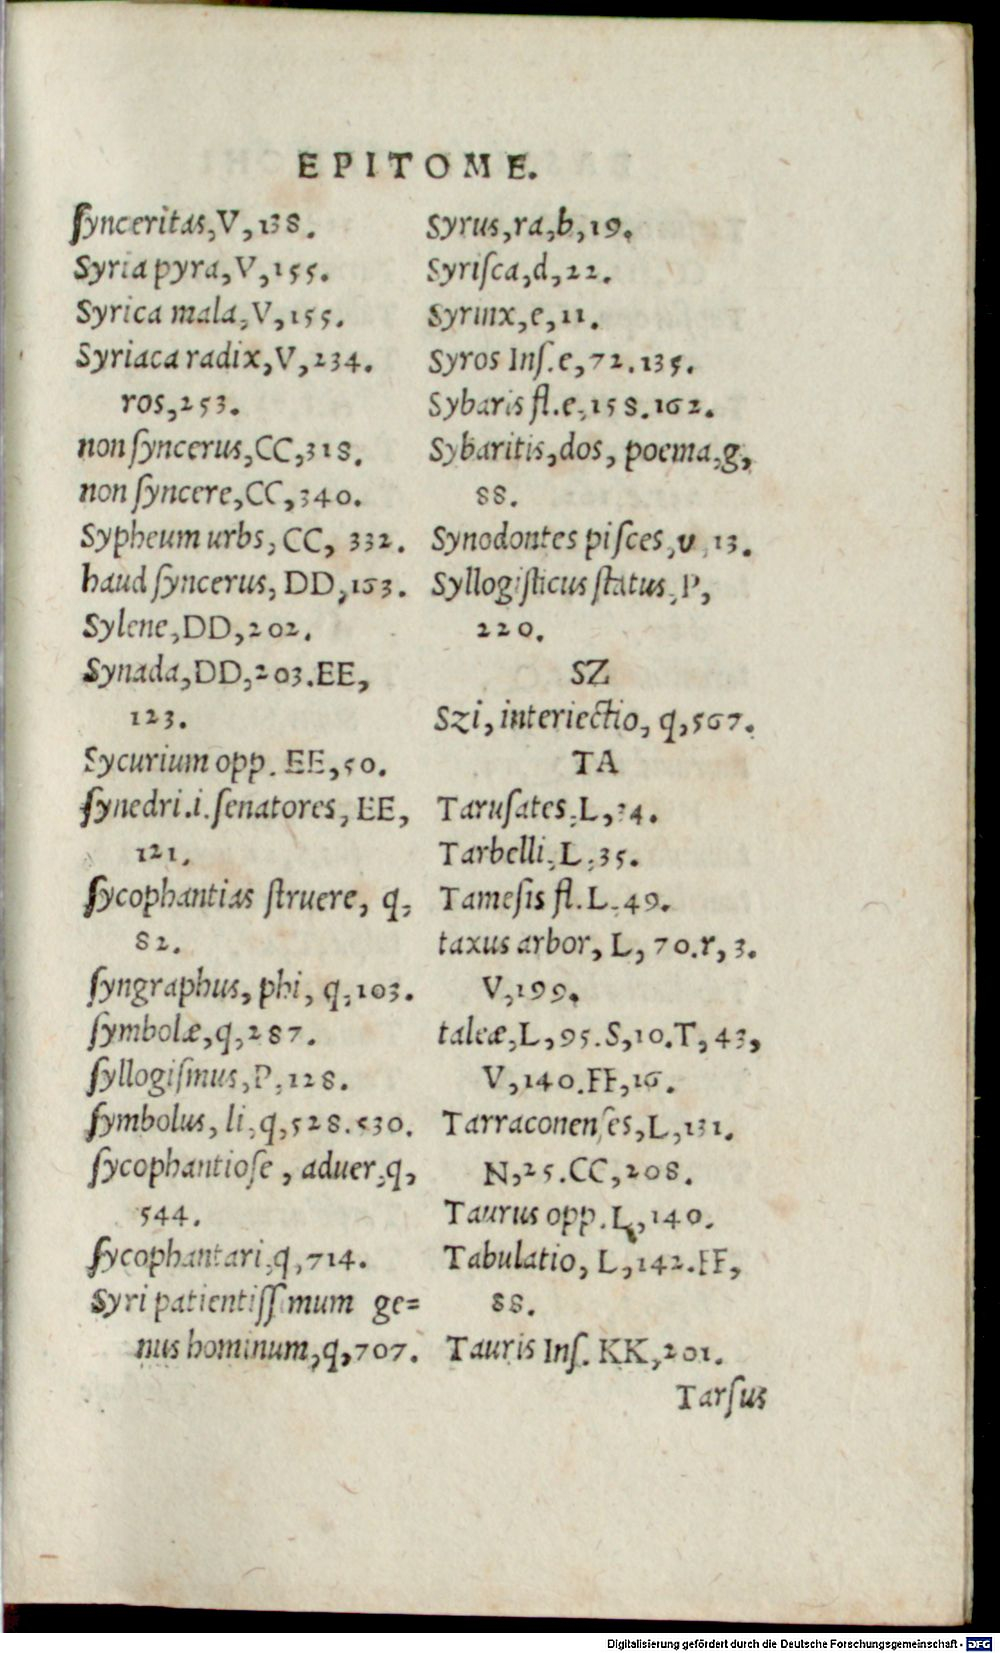 EPITOME.
ſynceritas, V, 138.
Syria pyra, V, 155.
Syrica mala, V, 155.
Syriaca radix, V, 234.
ros, 253.
non ſyncerus, CC, 318.
non ſyncere, CC, 340.
Sypheum urbs, CC, 332.
haud ſyncerus, DD, 163.
Sylene, DD, 202.
Synada, DD, 203. EE,
123.
Sycurium opp. EE, 50.
ſynedri .i. ſenatores, EE,
121.
ſycophantias ſtruere, q,
82.
ſyngraphus, phi, q, 103.
ſymbolæ, q, 287.
ſyllogiſmus, P, 128.
ſymbolus, li, q, 528. 530.
ſycophantioſe, aduer, q,
544.
ſycophantari, q, 714.
Syri patientiſſimum ge=
nus hominum, q, 707.
Syrus, ra, b, 19.
Syriſca, d, 22.
Syrinx, e, 11.
Syros Inſ. e, 72. 135.
Sybaris fl. e, 158. 162.
Sybaritis, dos, poema, g,
88.
Synodontes piſces, v, 13.
Syllogiſticus ſtatus, P,
220.
SZ
Szi, interiectio, q, 567.
TA
Taruſates, L, 34.
Tarbelli, L, 35.
Tameſis fl. L, 49.
taxus arbor, L, 70. r, 3.
V, 199.
taleæ, L, 95. S, 10. T, 43,
V, 140. FF, 16.
Tarraconenſes, L, 131.
N, 25. CC, 208.
Taurus opp. L, 140.
Tabulatio, L, 142. FF,
88.
Tauris Inſ. KK, 201.
Tarſus
Digitalisierung gefördert durch die Deutsche Forschungsgemeinschaft - DFG